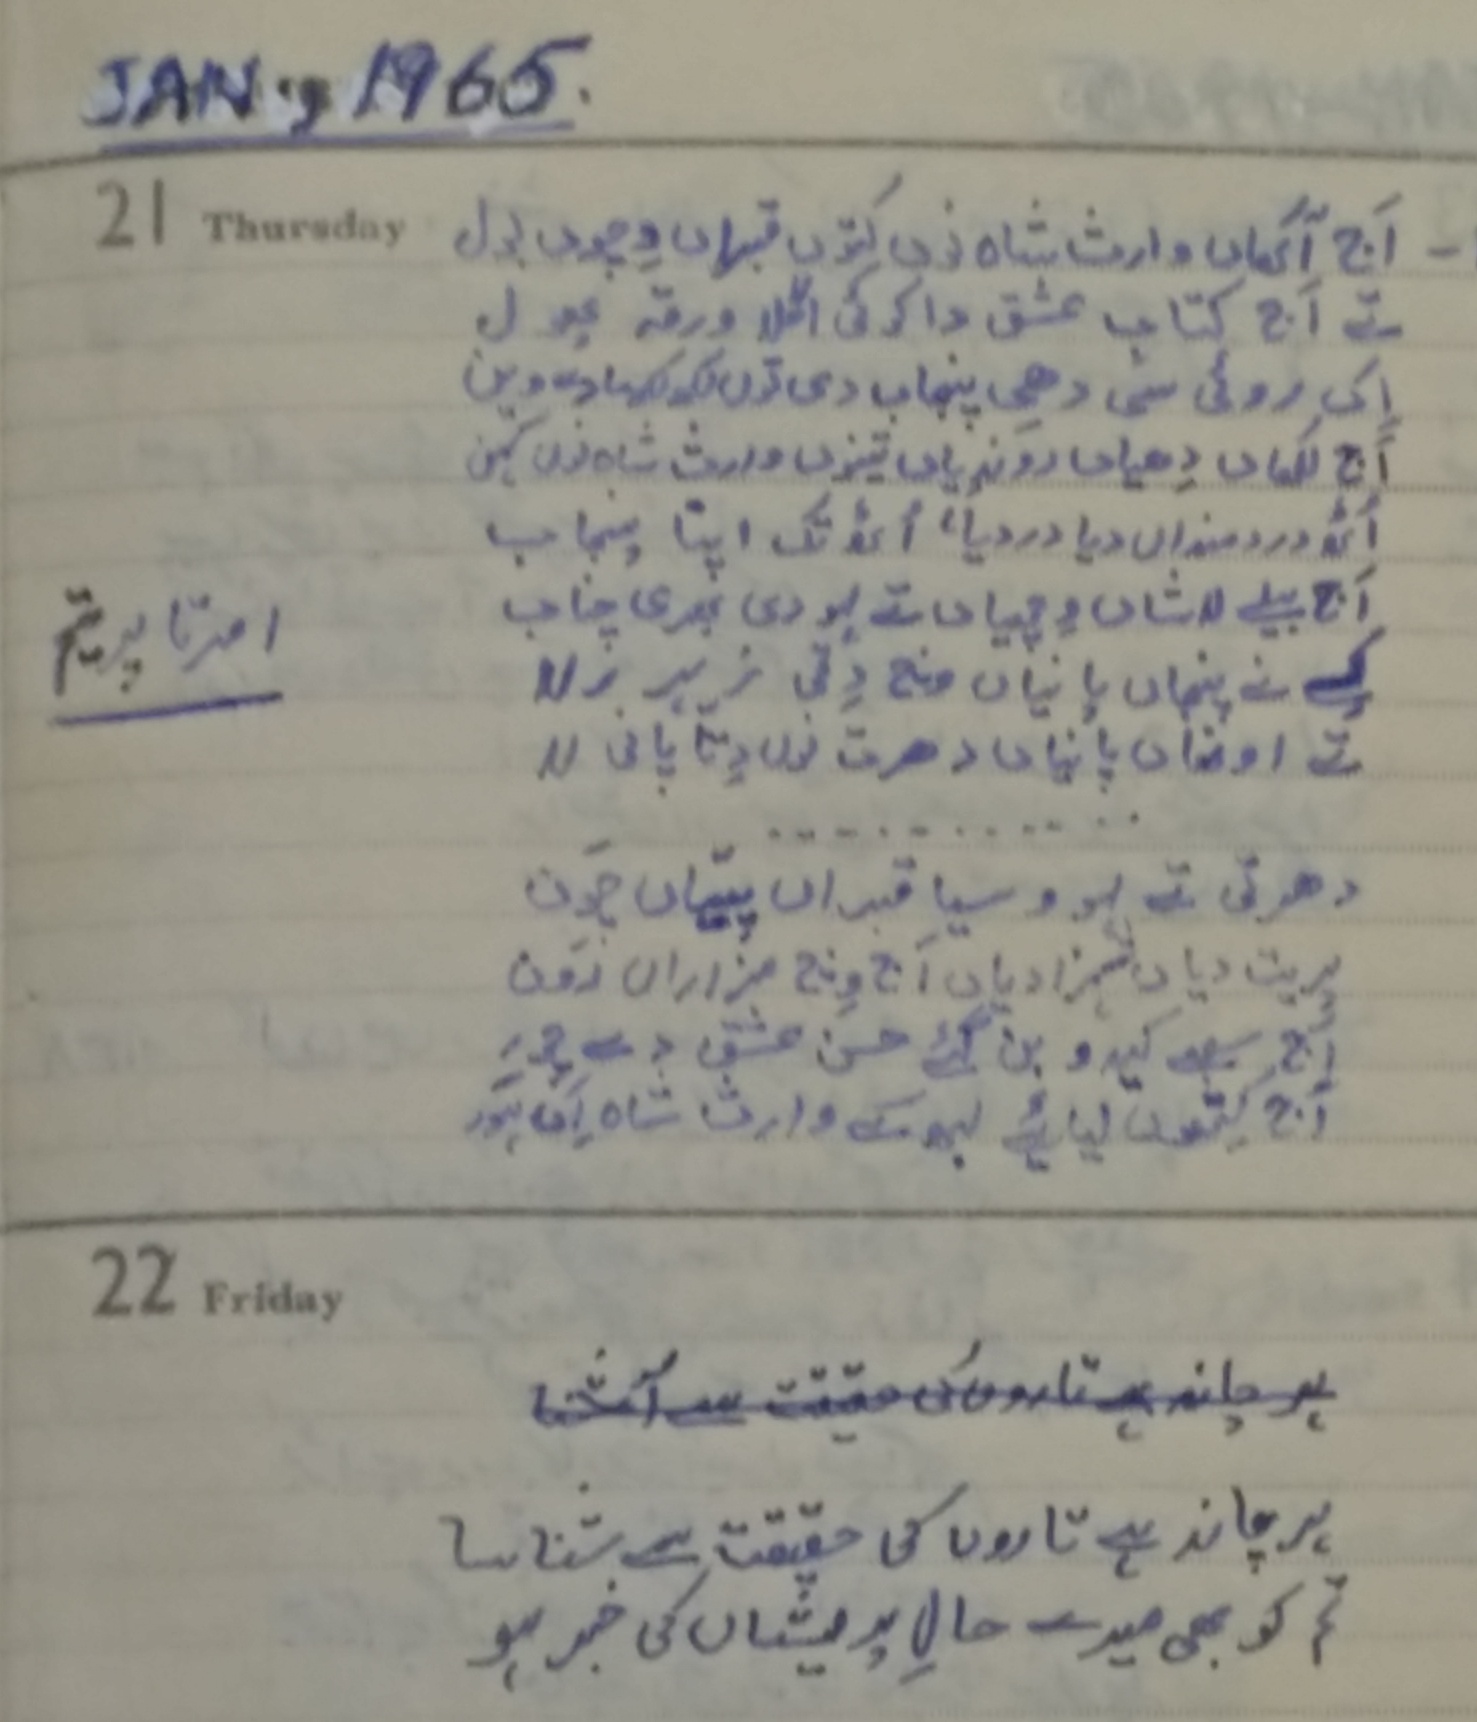 JAN, 1965.
21 Thursday
اَج آکھاں وارث شاہ نوں کِتوں قبراں وِچوں بول
تے اَج کتاب عشق دا کوئی اگلا ورقہ پھول
اِک روئی سی دھی پنجاب دی توں لکھ لکھ مارے وین
اَج لکھاں دِھیاں روندیاں تینوں وارث شاہ نوں کہن
اُٹھ دردمنداں دیا دردیا، اُٹھ تک اپنا پنجاب
اَج بیلے لاشاں وِچھیاں تے لہو دی بھری چناب
کسے نے پنجاں پانیاں وِنچ دِتی زہر رلا
تے اونھاں پانیاں دھرت نوں دِتا پانی لا
امرتا پریتم
. . . . . . . . . . .
دھرتی تے لہو وسیا قبراں پیّاں چَون
پریت دیاں شہزادیاں اَج وِنچ مزاراں رَون
اَج سبھے کیدو بن گئے حسن عشق دے چور
اَج کِتھوں لیایئے لبھ کے وارث شاہ اِک ہَور
22 Friday
ہر چاند ہے تاروں کی حقیقت سے آشنا
ہر چاند ہے تاروں کی حقیقت سے شناسا
تم کو بھی میرے حالِ پریشاں کی خبر ہو